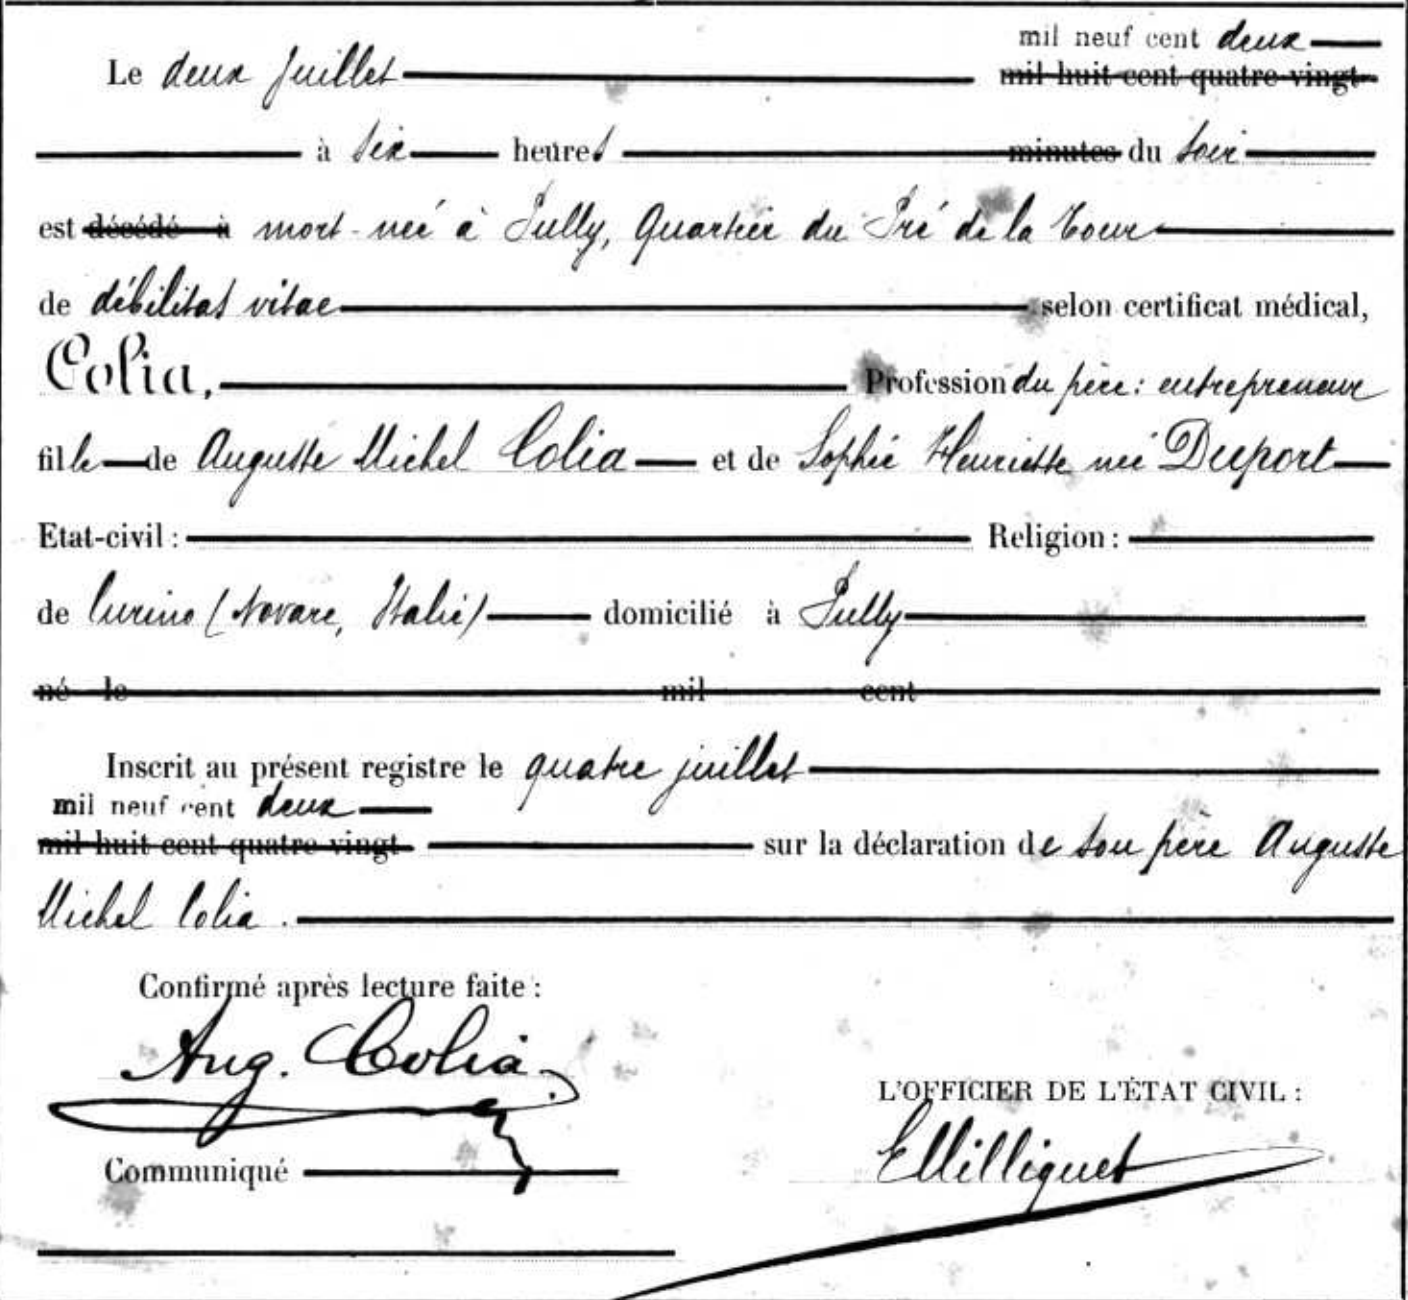 mil neuf cent deux
Le deux Juillet mil huit cent quatre-vingt
à six heures minutes du soir
est décédé à mort-née à Pully, Quartier du Pré de la Tour
de débilitas vitae selon certificat médical,
Colia, Profession du père: entrepreneur
fille de Auguste Michel Colia et de Sophie Henriette née Duport
Etat-civil: Religion:
de Curino (Novare, Italie) domicilié à Pully
né le mil cent
Inscrit au présent registre le quatre juillet
mil neuf cent deux
mil huit cent quatre-vingt sur la déclaration de son père Auguste
Michel Colia.
Confirmé après lecture faite:
Aug. Colia
L'OFFICIER DE L'ÉTAT CIVIL:
E Milliquet
Communiqué